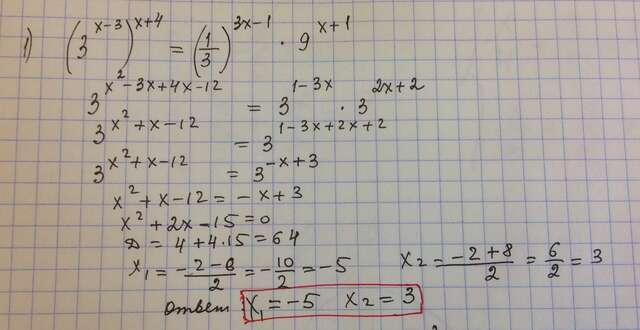 1) (3^(x-3))^(x+4) = (1/3)^(3x-1) · 9^(x+1)
3^(x²-3x+4x-12) = 3^(1-3x) · 3^(2x+2)
3^(x²+x-12) = 3^(1-3x+2x+2)
3^(x²+x-12) = 3^(-x+3)
x²+x-12 = -x+3
x²+2x-15=0
D = 4+4·15=64
x₁ = (-2-8)/2 = -10/2 = -5 x₂ = (-2+8)/2 = 6/2 = 3
ответ x₁ = -5 x₂ = 3